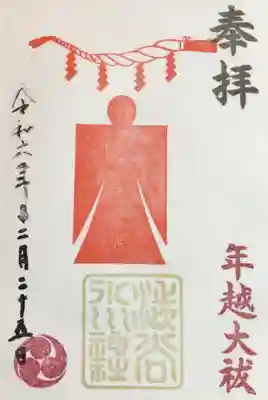 奉拝
年越大祓
渋谷氷川神社
令和六年十二月二十五日